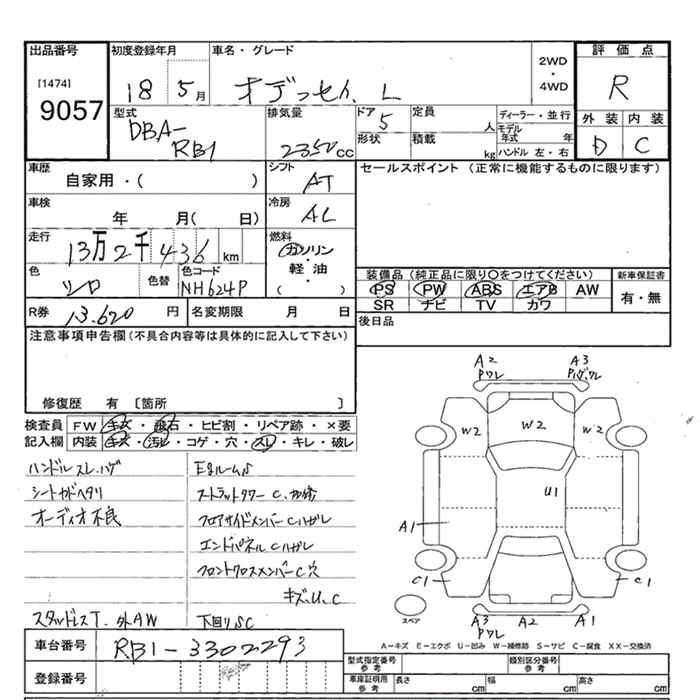 出品番号 初度登録年月 車名・グレード 2WD・4WD 評価点
[1474] 9057 18 5月 オデッセイ L R
型式 排気量 ドア 定員 ディーラー・並行 外装 内装
DBA-RB1 2350cc 5 人 モデル年式 年 D C
形状 積載 kg ハンドル 左・右
車歴 シフト セールスポイント (正常に機能するものに限ります)
自家用・( ) AT
車検 冷房
年 月( 日) AC
走行 燃料
13万2千436 km ガソリン・軽・油 ( )
色 色替 色コード 装備品 (純正品に限り○をつけてください) 新車保証書
シロ NH624P PS PW ABS エアB AW 有・無
SR ナビ TV カワ
R券 13.620円 名変期限 月 日 後日品
注意事項申告欄(不具合内容等は具体的に記入して下さい)
修復歴 有 〔箇所 〕
検査員記入欄 FW キズ・飛石・ヒビ割・リペア跡・×要
内装 キズ・汚レ・コゲ・穴・スレ・キレ・破レ
ハンドルスレ、ハゲ
シートガヘタリ
オーディオ不良
スタッドレスT. 外AW
EgルームS
ストラットタワー C.
フロアサイドメンバー Cハガレ
エンドパネル Cハガレ
フロントクロスメンバー C穴
キズ、U、C
下回りSC
A2 Pワレ
A3
W2 W2 W2
U1
A1
C1 C1
スペア
A3 Pワレ A2 A1
A-キズ E-エクボ U-凹み W-補修跡 S-サビ C-腐食 XX-交換済
車台番号 RB1-3302293
登録番号
型式指定番号 参考 類別区分番号 参考
車庫証明用 参考 長さ cm 幅 cm 高さ cm